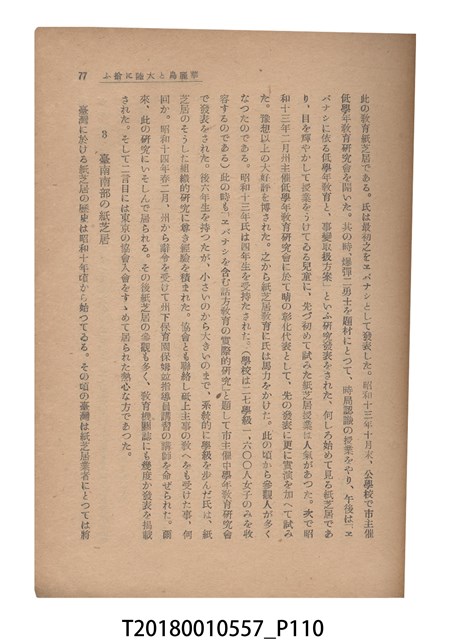 華麗島と大陸に繪ふ
77
此の敎育紙芝居である。氏は最初之をヱバナシとして發表した。昭和十三年十月末、公學校で市主催
低學年敎育硏究會を開いた。其の時、爆彈二勇士を題材にとつて、時局認識の授業をやり、午後は「ヱ
バナシに依る低學年敎育と、事變取扱方案」といふ硏究發表をされた、何しろ始めて見る紙芝居であ
り、目を輝やかして授業をうけてゐる兒童に、先づ初めて試みた紙芝居授業は人氣があつた。次で昭
和十三年二月州主催低學年敎育硏究會に於て晴の彰化代表として、先の發表に更に實演を加へて試み
た。豫想以上の大好評を博された。之から紙芝居敎育に氏は馬力をかけた。此の頃から參觀人が多く
なつたのである。昭和十三年氏は四年生を受持たされた。（學校は二七學級一、六〇〇人女子のみを收
容するのである）此の時も「ヱバナシを含む話方敎育の實際的硏究」と題して市主催中學年敎育硏究會
で發表をされた。後六年生を持つたが、小さいのから大きいのまで、系統的に學級を步んだ氏は、紙
芝居のそうした組織的硏究に尊き經驗を積まれた。協會とも聯絡し紙上主事の敎へをも受けた事、何
回か。昭和十四年二月、州から辭令を受けて州下保育園保姆並指導員講習の講師を命ぜられた。爾
來、此の硏究にいそしんで居られる。その後紙芝居の參觀も多く、敎育機關誌にも幾度か發表を揭載
された。そして二言目には東京の協會入會をすゝめて居られた熱心な方であつた。
3 臺南南部の紙芝居
臺灣に於ける紙芝居の歷史は昭和十年頃から始つてゐる。その頃の臺灣は紙芝居業者にとつては將
T20180010557_P110